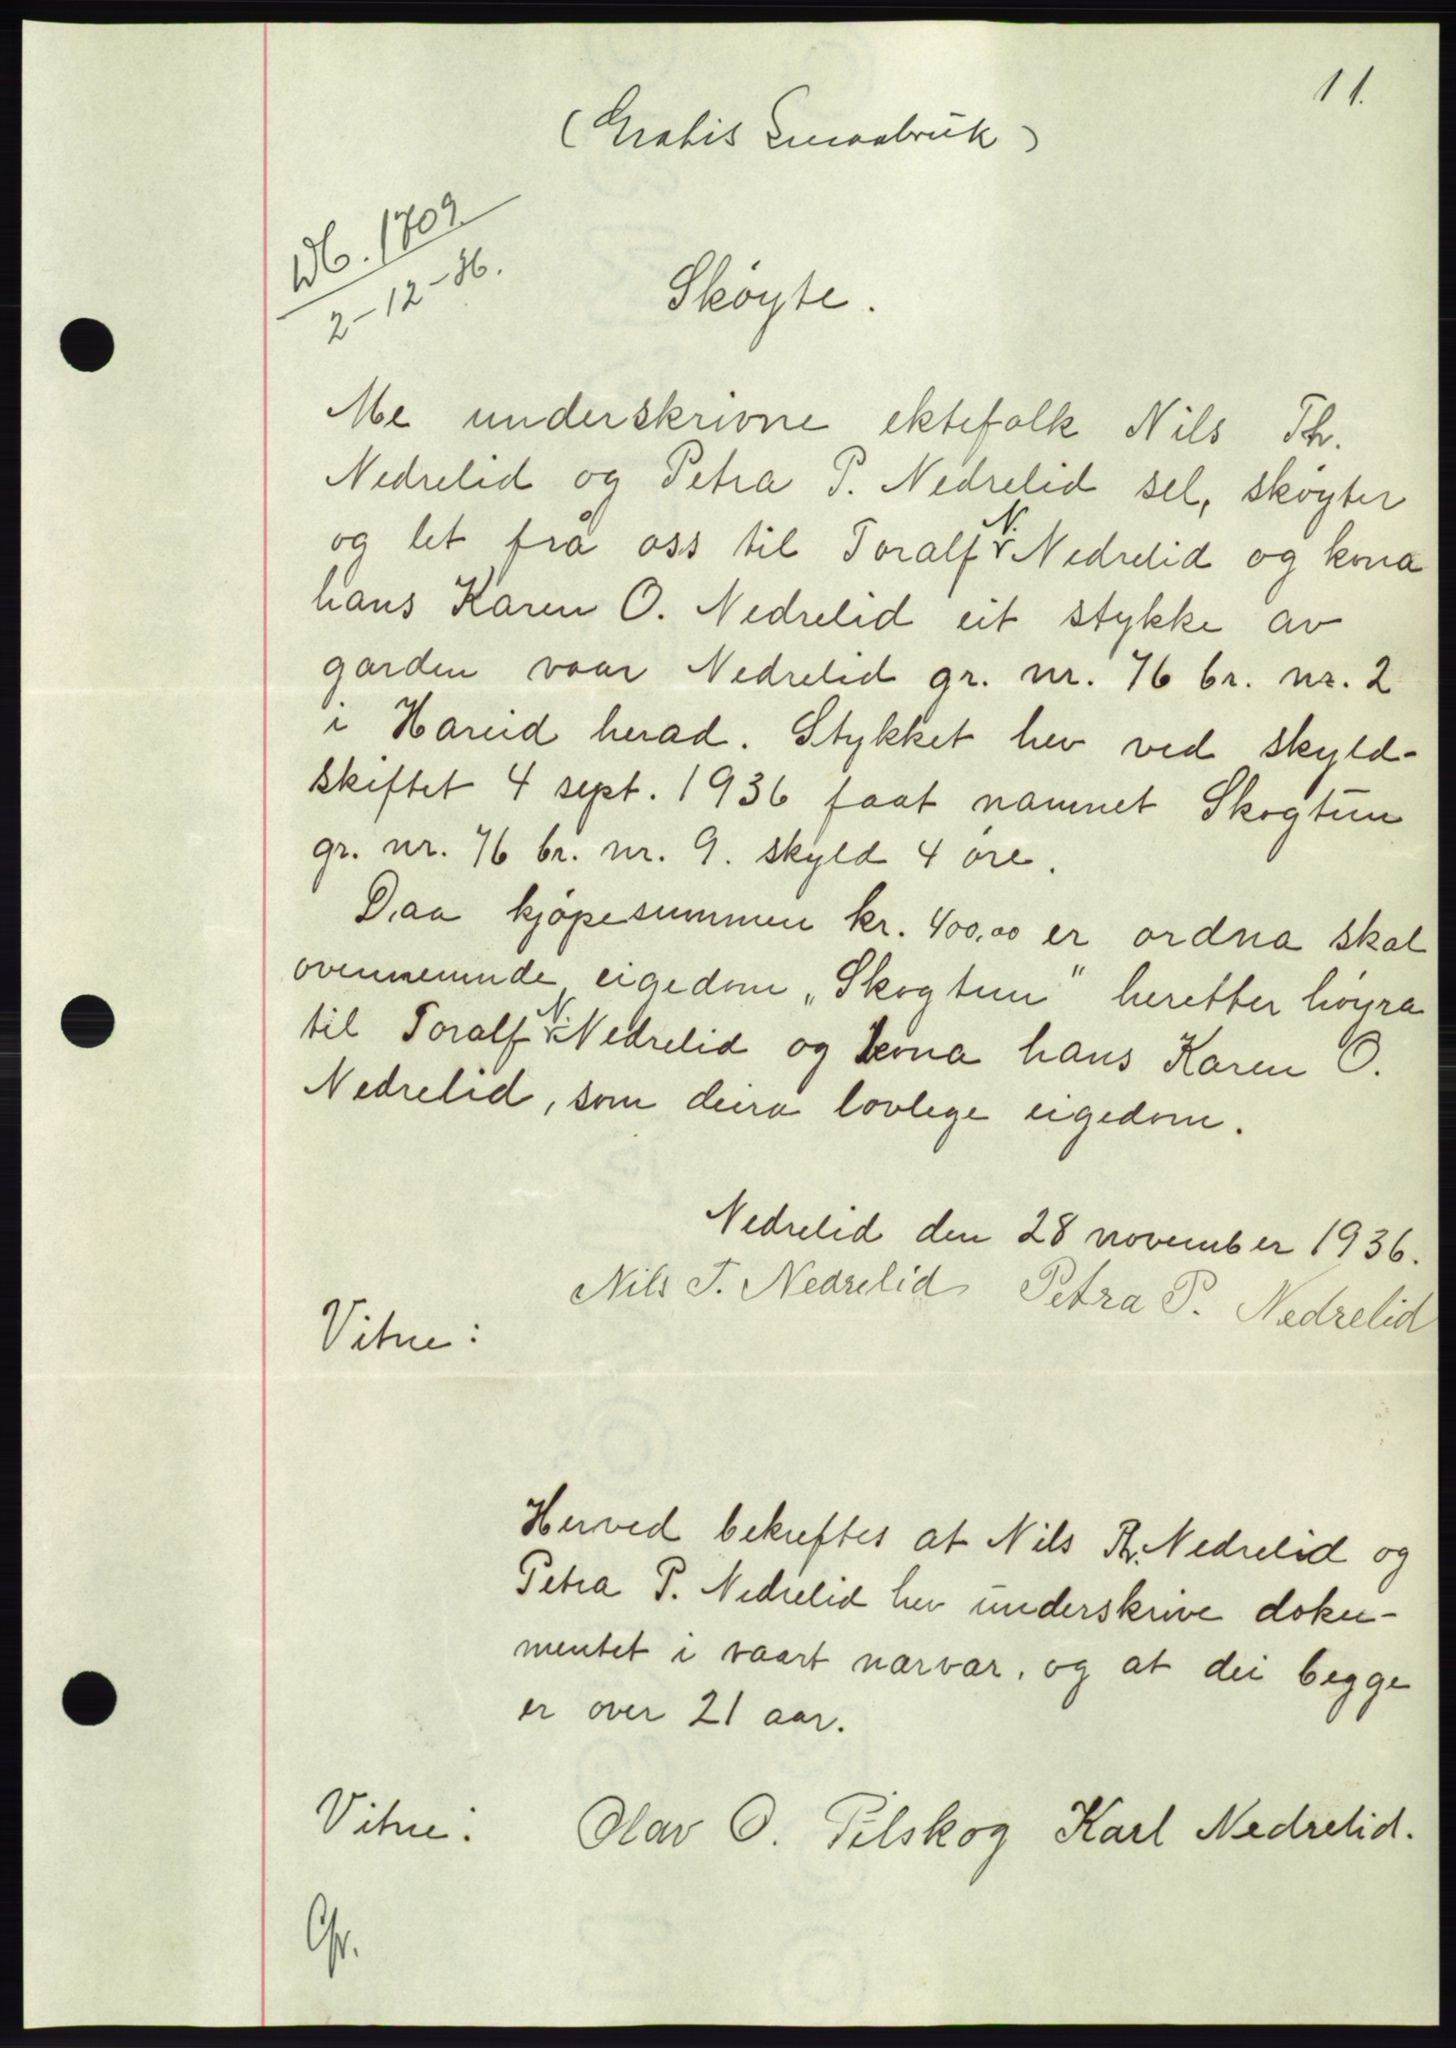 11.
(Gratis Smaabruk)
Db. 1709
2-12-36.
Skøyte.
Me underskrivne ektefolk Nils Th.
Nedrelid og Petra P. Nedrelid sel, skøyter
og let frå oss til Toralf N. Nedrelid og kona
hans Karen O. Nedrelid eit stykke av
garden vaar Nedrelid gr. nr. 76 br. nr. 2
i Hareid herad. Stykket hev ved skyld-
skiftet 4 sept. 1936 faat namnet Skogtun
gr. nr. 76 br. nr. 9. skyld 4 øre.
Daa kjøpesummen kr. 400,00 er ordna skal
ovennemnde eigedom „Skogtun" heretter høyra
til Toralf N. Nedrelid og kona hans Karen O.
Nedrelid, som deira lovlege eigedom.
Nedrelid den 28 november 1936.
Nils T. Nedrelid Petra P. Nedrelid
Vitne:
Herved bekreftes at Nils Th. Nedrelid og
Petra P. Nedrelid hev underskrive doku-
mentet i vaart nærvær, og at dei begge
er over 21 aar.
Vitne: Olav O. Pilskog Karl Nedrelid.